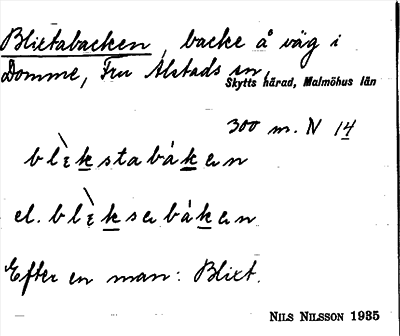 Blixtabacken, backe å väg i
Domme, Fru Alstads sn,
Skytts härad, Malmöhus län
300 m. N 14
blèkstabákan
el. blèksabákan
Efter en man: Blixt.
NILS NILSSON 1935